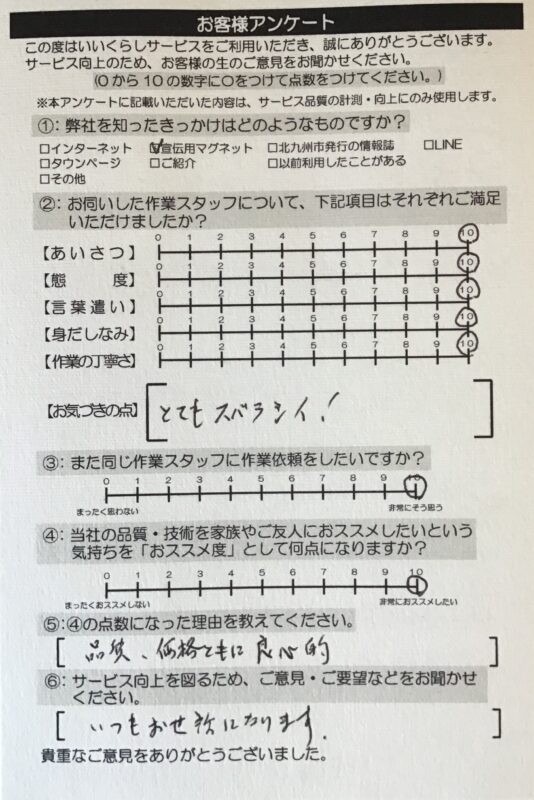 お客様アンケート
この度はいいくらしサービスをご利用いただき、誠にありがとうございます。
サービス向上のため、お客様の生のご意見をお聞かせください。
(0から10の数字に○をつけて点数をつけてください。)
※本アンケートに記載いただいた内容は、サービス品質の計測・向上にのみ使用します。
①：弊社を知ったきっかけはどのようなものですか？
□インターネット ☑宣伝用マグネット □北九州市発行の情報誌 □LINE
□タウンページ □ご紹介 □以前利用したことがある
□その他
②：お伺いした作業スタッフについて、下記項目はそれぞれご満足
いただけましたか？
0 1 2 3 4 5 6 7 8 9 10
【あいさつ】
0 1 2 3 4 5 6 7 8 9 10
【態度】
0 1 2 3 4 5 6 7 8 9 10
【言葉遣い】
0 1 2 3 4 5 6 7 8 9 10
【身だしなみ】
0 1 2 3 4 5 6 7 8 9 10
【作業の丁寧さ】
【お気づきの点】 [とてもスバラシイ！]
③：また同じ作業スタッフに作業依頼をしたいですか？
0 1 2 3 4 5 6 7 8 9 10
まったく思わない 非常にそう思う
④：当社の品質・技術を家族やご友人におススメしたいという
気持ちを「おススメ度」として何点になりますか？
0 1 2 3 4 5 6 7 8 9 10
まったくおススメしない 非常におススメしたい
⑤：④の点数になった理由を教えてください。
[品質、価格ともに良心的]
⑥：サービス向上を図るため、ご意見・ご要望などをお聞かせ
ください。
[いつもお世話になります.]
貴重なご意見をありがとうございました。